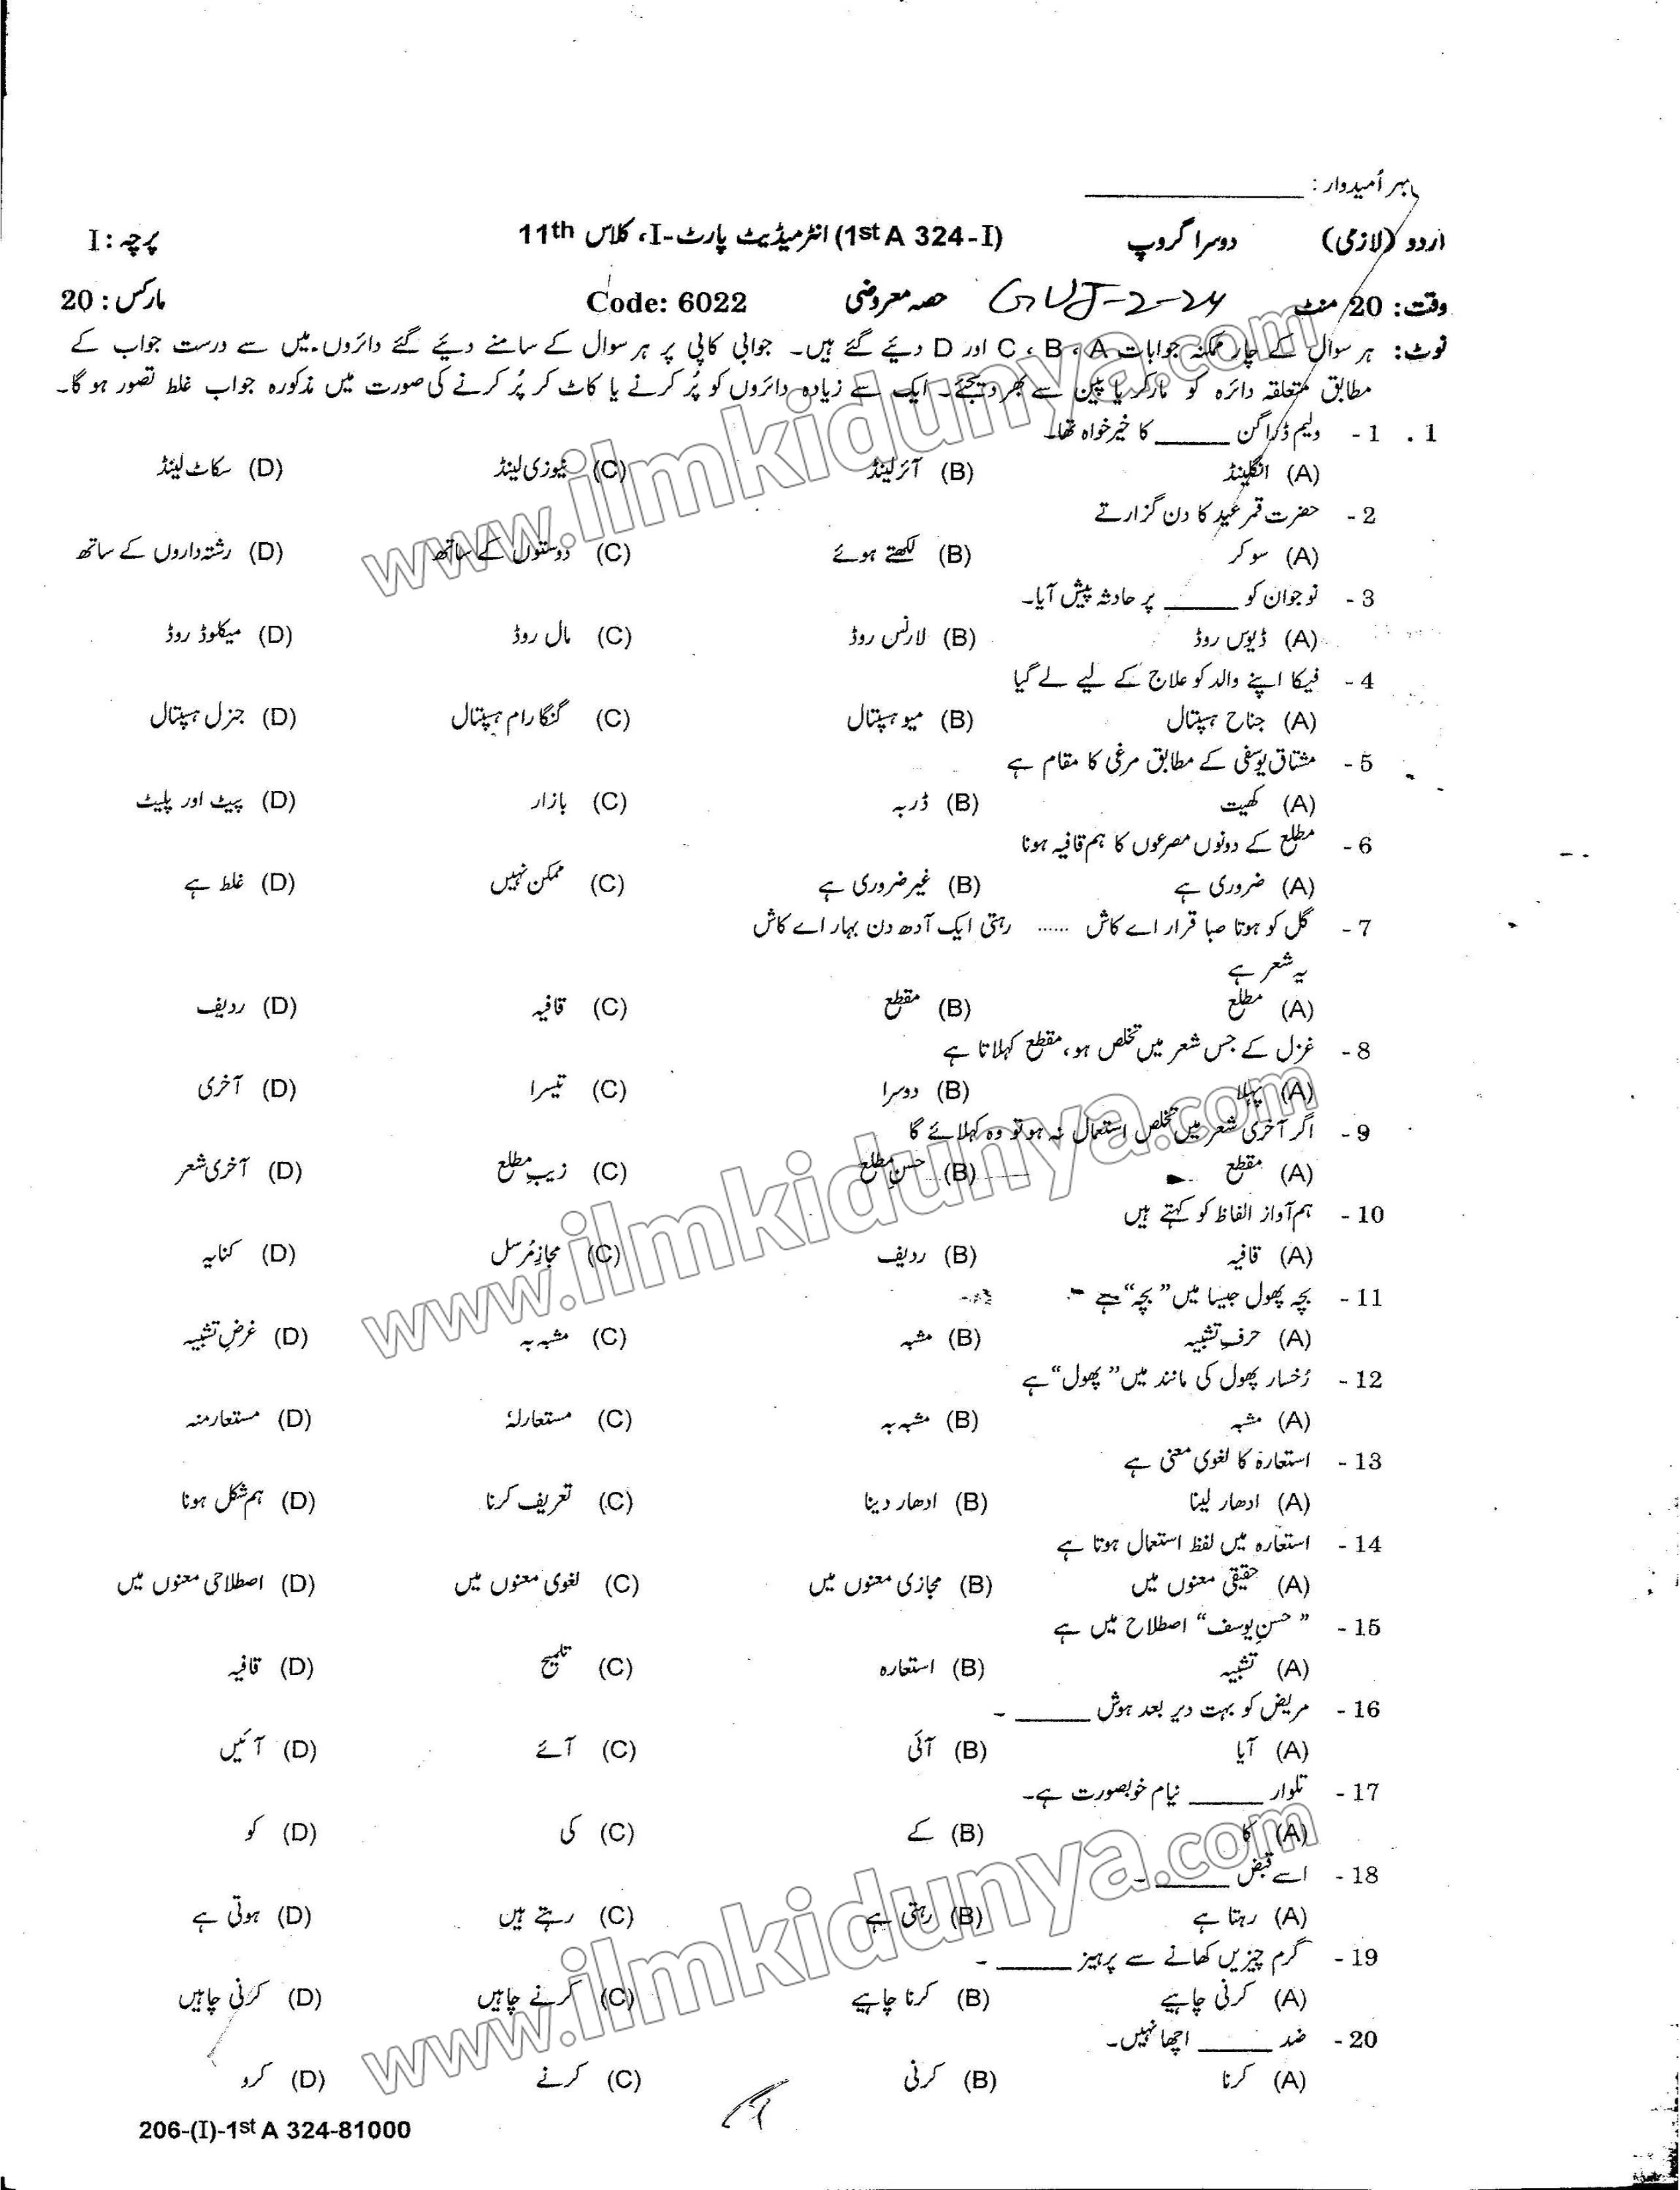 نمبر اُمیدوار : ____________
اردو (لازمی) دوسرا گروپ (1st A 324-I) انٹرمیڈیٹ پارٹ-I، کلاس 11th پرچہ : I
وقت: 20 منٹ GUJ-2-24 حصہ معروضی Code: 6022 مارکس : 20
نوٹ: ہر سوال کے چار ممکنہ جوابات A ، B ، C اور D دیئے گئے ہیں۔ جوابی کاپی پر ہر سوال کے سامنے دیئے گئے دائروں میں سے درست جواب کے
مطابق متعلقہ دائرہ کو مارکر یا پین سے بھر دیجئے۔ ایک سے زیادہ دائروں کو پُر کرنے یا کاٹ کر پُر کرنے کی صورت میں مذکورہ جواب غلط تصور ہو گا۔
1 . 1 - ولیم ڈراگن _____ کا خیر خواہ تھا۔
(A) انگلینڈ (B) آئرلینڈ (C) نیوزی لینڈ (D) سکاٹ لینڈ
2 - حضرت قمر عید کا دن گزارتے
(A) سو کر (B) لکھتے ہوئے (C) دوستوں کے ساتھ (D) رشتہ داروں کے ساتھ
3 - نوجوان کو _____ پر حادثہ پیش آیا۔
(A) ڈیوس روڈ (B) لارنس روڈ (C) مال روڈ (D) میکلوڈ روڈ
4 - فیکا اپنے والد کو علاج کے لیے لے گیا
(A) جناح ہسپتال (B) میو ہسپتال (C) گنگا رام ہسپتال (D) جنرل ہسپتال
5 - مشتاق یوسفی کے مطابق مرغی کا مقام ہے
(A) کھیت (B) ڈربہ (C) بازار (D) پیٹ اور پلیٹ
6 - مطلع کے دونوں مصرعوں کا ہم قافیہ ہونا
(A) ضروری ہے (B) غیر ضروری ہے (C) ممکن نہیں (D) غلط ہے
7 - گل کو ہوتا صبا قرار اے کاش ...... رہتی ایک آدھ دن بہار اے کاش
یہ شعر ہے
(A) مطلع (B) مقطع (C) قافیہ (D) ردیف
8 - غزل کے جس شعر میں تخلص ہو، مقطع کہلاتا ہے
(A) پہلا (B) دوسرا (C) تیسرا (D) آخری
9 - اگر آخری شعر میں تخلص استعمال نہ ہو تو وہ کہلائے گا
(A) مقطع (B) حسنِ مطلع (C) زیبِ مطلع (D) آخری شعر
10 - ہم آواز الفاظ کو کہتے ہیں
(A) قافیہ (B) ردیف (C) مجازِ مُرسل (D) کنایہ
11 - بچہ پھول جیسا میں ”بچہ“ ہے
(A) حرفِ تشبیہ (B) مشبہ (C) مشبہ بہ (D) غرضِ تشبیہ
12 - رُخسار پھول کی مانند میں ”پھول“ ہے
(A) مشبہ (B) مشبہ بہ (C) مستعارلہٗ (D) مستعارمنہ
13 - استعارہ کا لغوی معنی ہے
(A) ادھار لینا (B) ادھار دینا (C) تعریف کرنا (D) ہم شکل ہونا
14 - استعارہ میں لفظ استعمال ہوتا ہے
(A) حقیقی معنوں میں (B) مجازی معنوں میں (C) لغوی معنوں میں (D) اصطلاحی معنوں میں
15 - ”حسنِ یوسف“ اصطلاح میں ہے
(A) تشبیہ (B) استعارہ (C) تلمیح (D) قافیہ
16 - مریض کو بہت دیر بعد ہوش _____ ۔
(A) آیا (B) آئی (C) آئے (D) آئیں
17 - تلوار _____ نیام خوبصورت ہے۔
(A) کا (B) کے (C) کی (D) کو
18 - اسے قبض _____ ۔
(A) رہتا ہے (B) رہتی ہے (C) رہتے ہیں (D) ہوتی ہے
19 - گرم چیزیں کھانے سے پرہیز _____ ۔
(A) کرنی چاہیے (B) کرنا چاہیے (C) کرنے چاہیں (D) کرنی چاہیں
20 - ضد _____ اچھا نہیں۔
(A) کرنا (B) کرنی (C) کرنے (D) کرو
206-(I)-1st A 324-81000
www.ilmkidunya.com
www.ilmkidunya.com
www.ilmkidunya.com